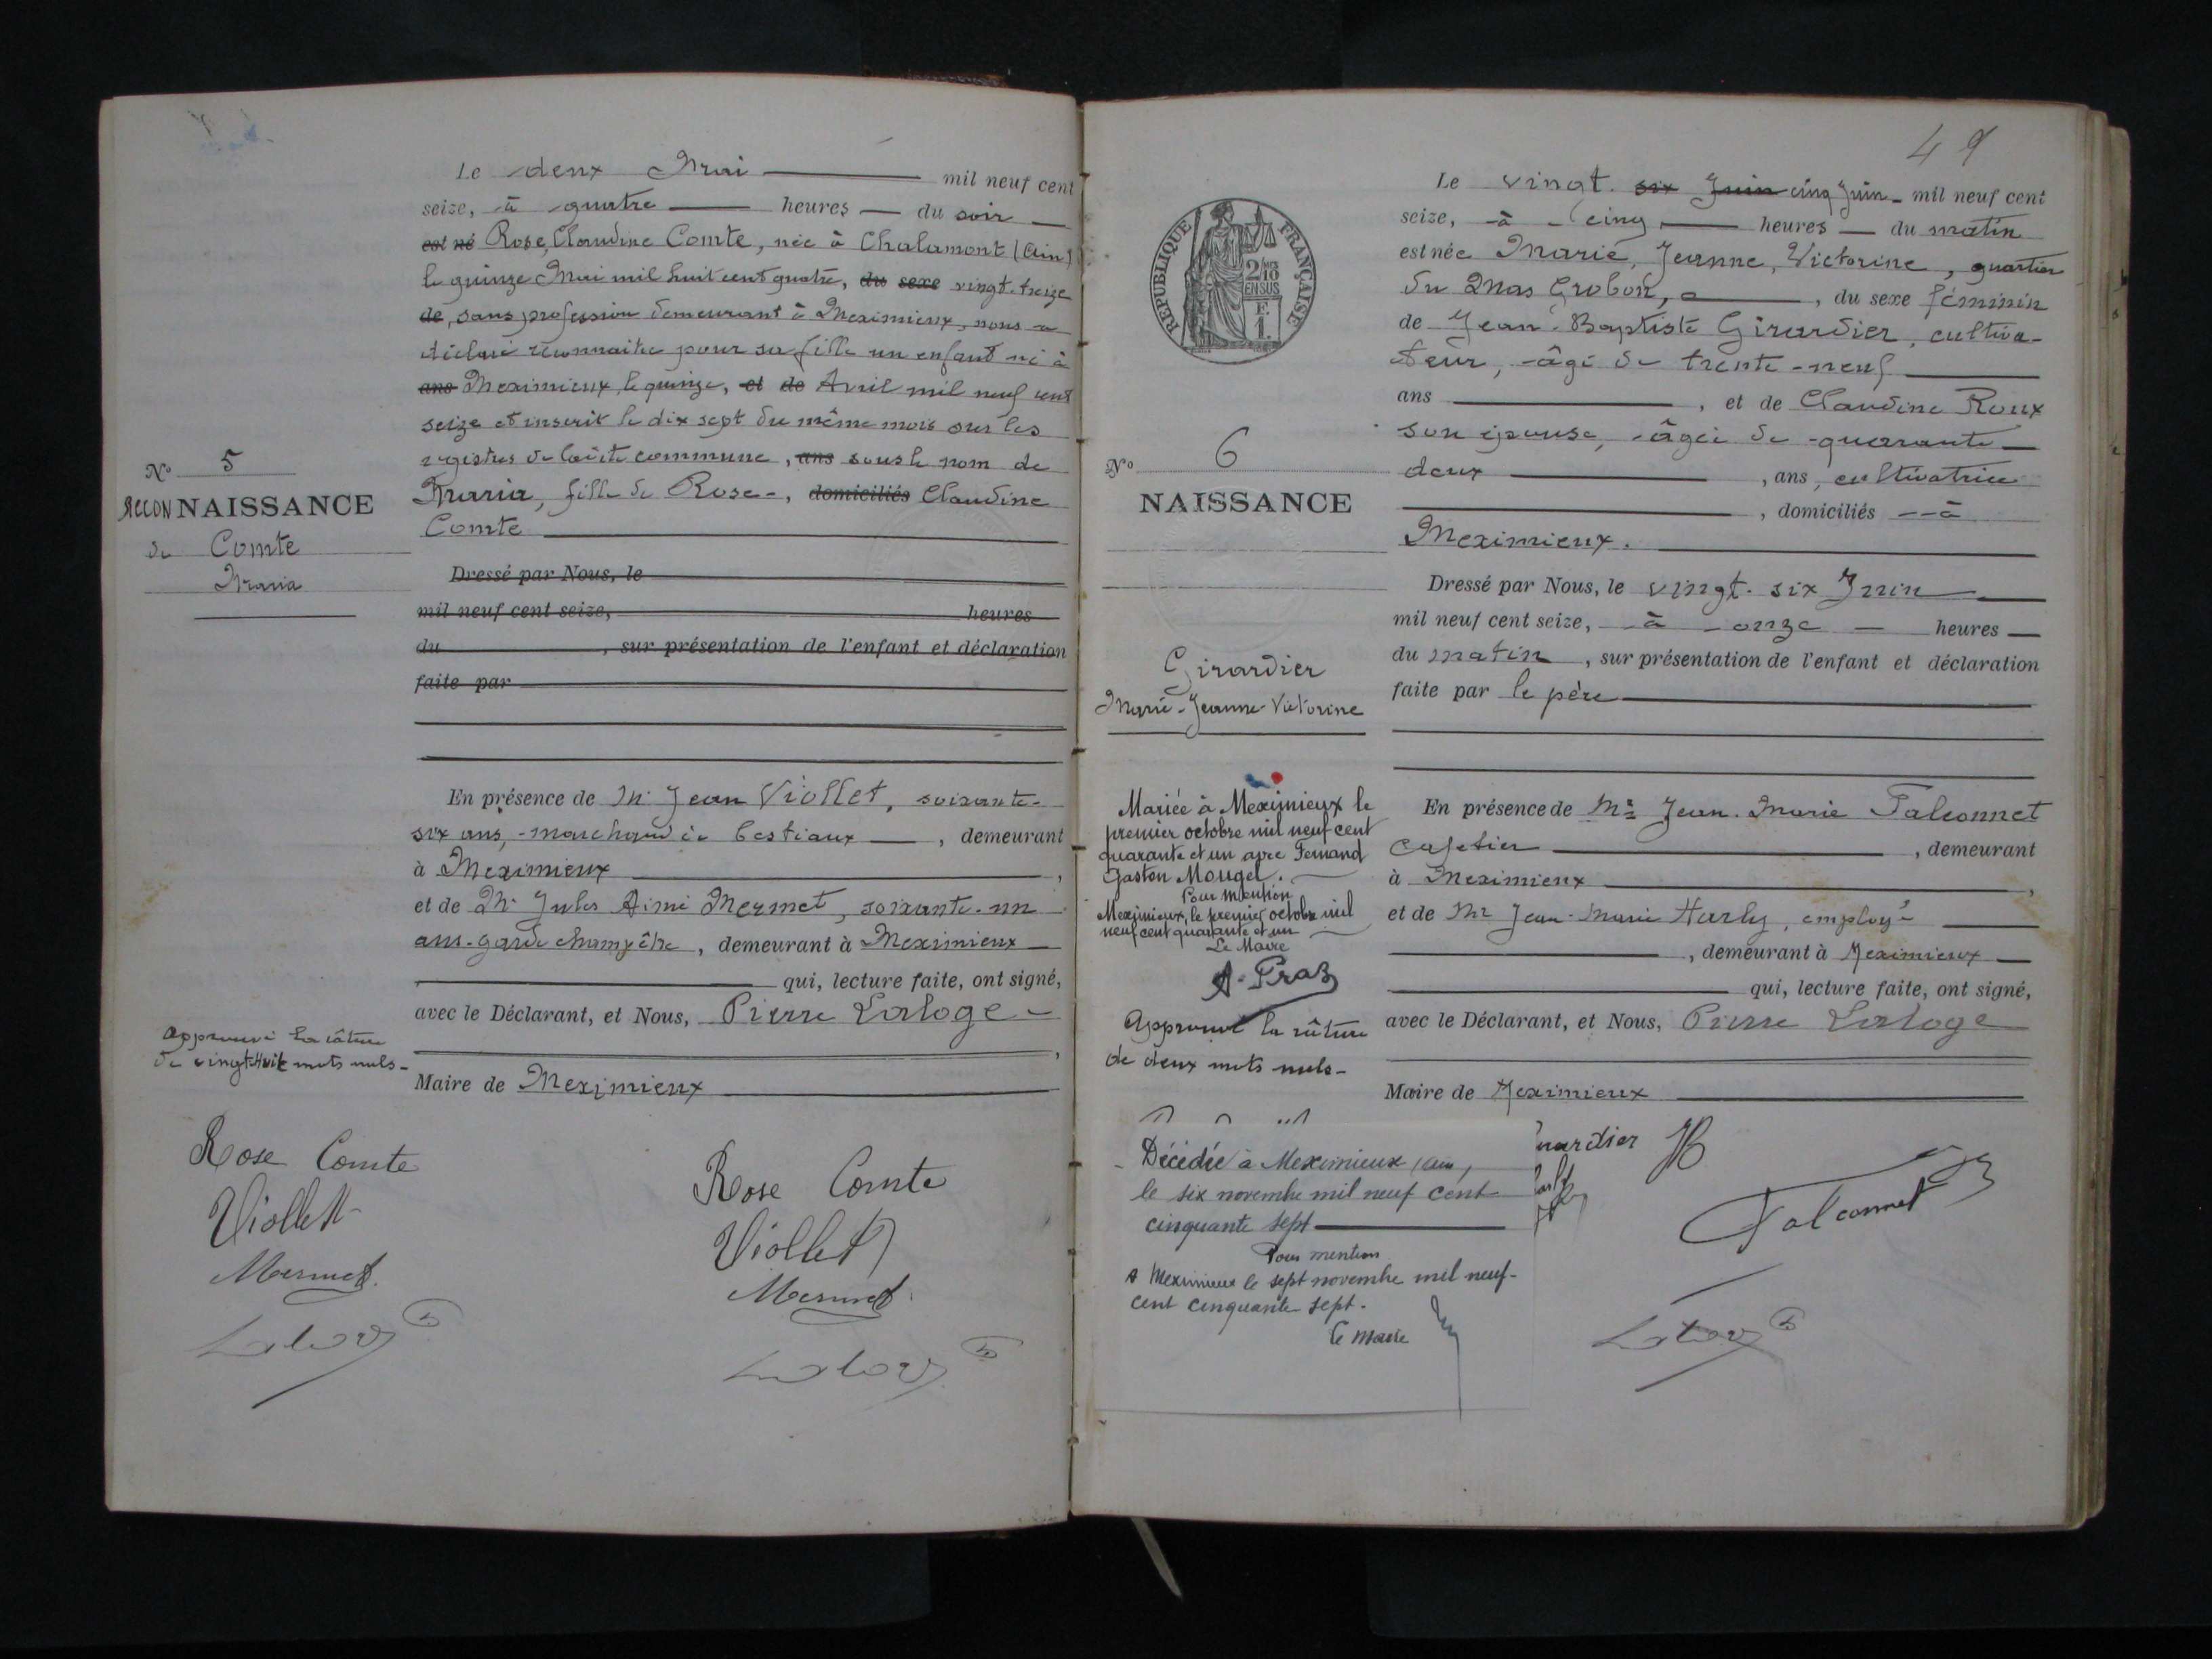 Le deux Mai mil neuf cent
seize, à quatre heures du soir
est né Rose, Claudine Comte, née à Chalamont (Ain)
le quinze Mai mil huit cent quatre, du sexe vingt-treize
de, sans profession demeurant à Meximieux, nous a
déclaré reconnaitre pour sa fille un enfant né à
ans Meximieux, le quinze, et de Avril mil neuf cent
seize et inscrit le dix sept du même mois sur les
registres de la dite commune, ans sous le nom de
Maria, fille de Rose-, domiciliés Claudine
Comte
N° 5
RECONNAISSANCE
de Comte
Maria
Dressé par Nous, le
mil neuf cent seize, heures
du , sur présentation de l'enfant et déclaration
faite par
En présence de Mr Jean Viollet, soixante-
six ans, marchand de bestiaux , demeurant
à Meximieux ,
et de Mr Jules Aimé Mermet, soixante-un
ans-garde champêtre, demeurant à Meximieux
qui, lecture faite, ont signé,
avec le Déclarant, et Nous, Pierre Laloge
Maire de Meximieux
Approuvé la râture
de vingt-huit mots nuls-
Rose Comte
Viollet
Mermet
Rose Comte
Viollet
Mermet
49
RÉPUBLIQUE FRANÇAISE
2/10
EN SUS
F.
1.
Le vingt. six Juin cinq Juin mil neuf cent
seize, à cinq heures du matin
est née Marie, Jeanne, Victorine, quartier
du Mas Grobon, , du sexe féminin
de Jean-Baptiste Girardier, cultiva-
teur, âgé de trente-neuf
ans , et de Claudine Roux
son épouse, âgée de quarante
deux , ans, cultivatrice
, domiciliés à
Meximieux.
N° 6
NAISSANCE
Girardier
Marie-Jeanne-Victorine
Dressé par Nous, le vingt-six Juin
mil neuf cent seize, à onze heures
du matin , sur présentation de l'enfant et déclaration
faite par le père
En présence de Mr Jean-Marie Falconnet
cafetier , demeurant
à Meximieux ,
et de Mr Jean-Marie Harly, employé
, demeurant à Meximieux
qui, lecture faite, ont signé,
avec le Déclarant, et Nous, Pierre Laloge
Maire de Meximieux
Mariée à Meximieux le
premier octobre mil neuf cent
quarante et un avec Fernand
Gaston Mougel.
Pour mention
Meximieux, le premier octobre mil
neuf cent quarante et un
Le Maire
A. Praz
Approuvé la râture
de deux mots nuls-
Décédée à Meximieux (Ain)
le six novembre mil neuf cent
cinquante sept
Pour mention
A Meximieux le sept novembre mil neuf-
cent cinquante sept.
Le Maire
rardier JB
Falconnet